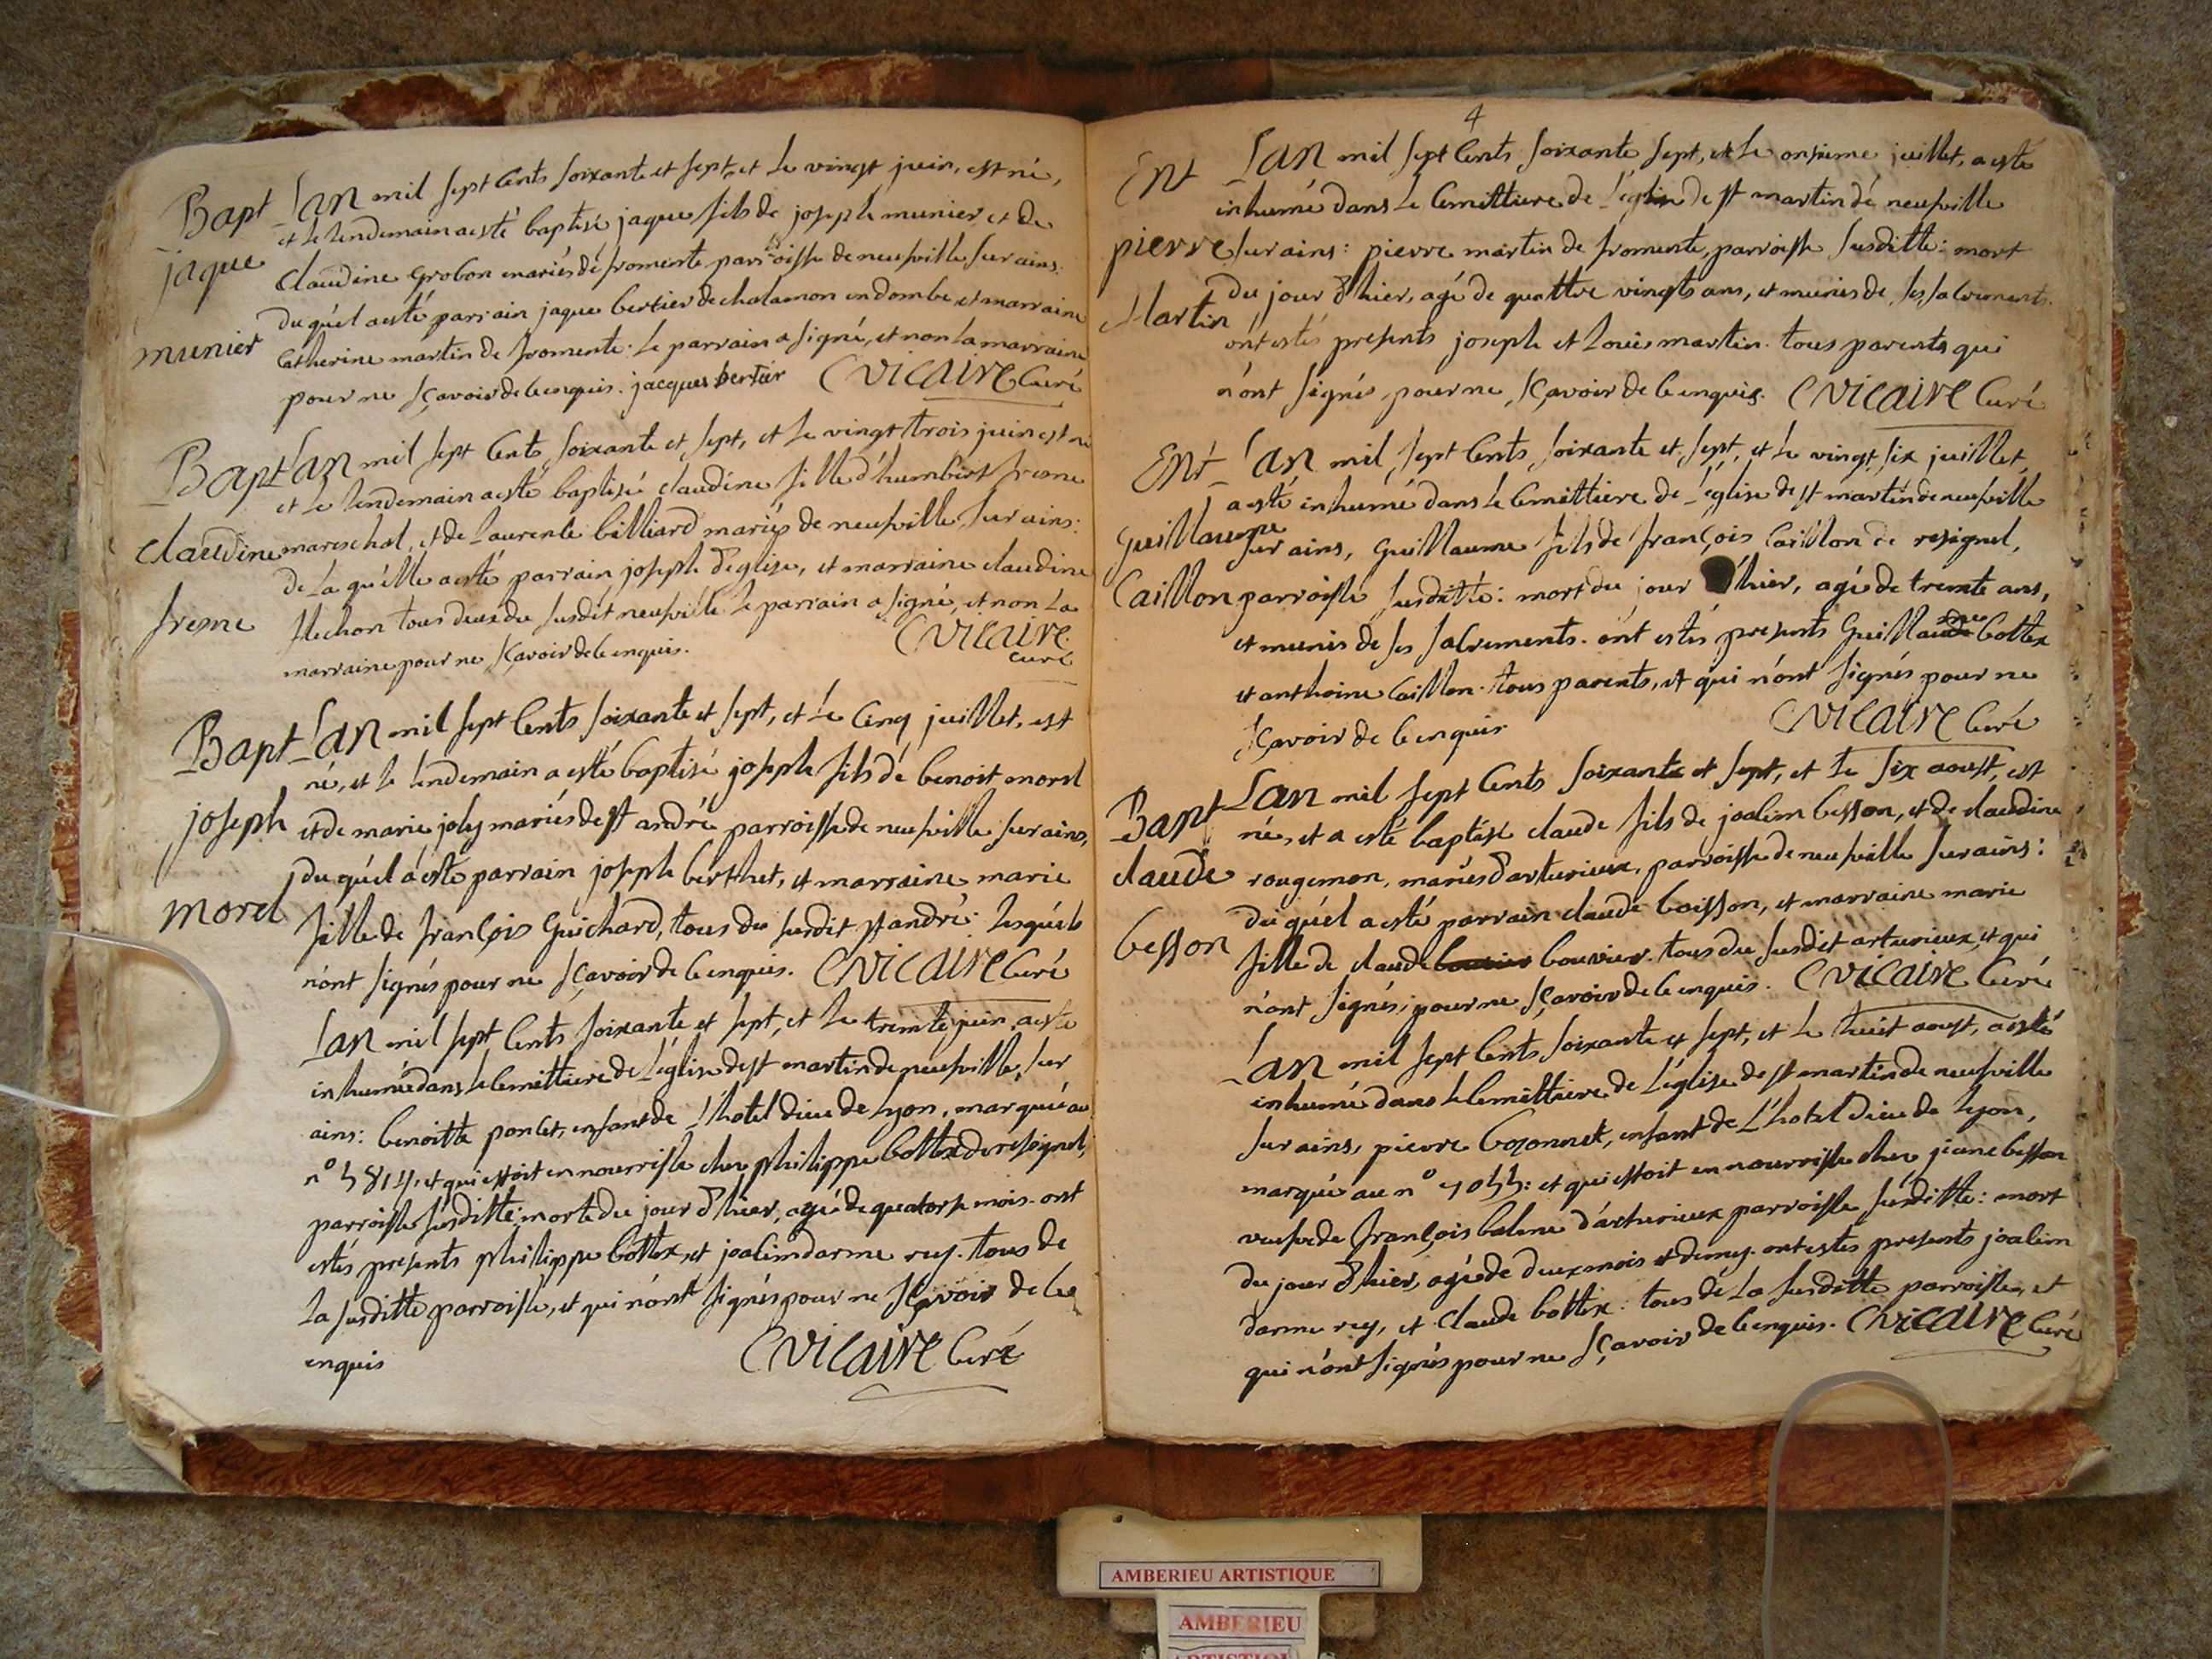 Bapt
jaque
munier
L'an mil sept Cents soixante et sept, et le vingt juin, est né,
et le lendemain a esté baptisé jaque fils de joseph munier et de
Claudine Grobon mariés de fromente parroisse de neufville sur ains.
du quél a esté parrain jaque bertier de chalamon en dombe et marraine
Catherine martin de fromente. Le parrain a signé, et non la marraine
pour ne sçavoir de ce enquis. jacques bertier Cvicaire Curé
Bapt
Claudine
fresne
L'an mil sept Cents soixante et sept, et le vingt trois juin est né
et le lendemain a esté baptisé claudine fille d'humbert fresne
mareschal, et de Laurence billiard mariés de neufville sur ains:
de la quélle a esté parrain joseph d'eglise, et marraine claudine
flechon tous deux du susdit neufville le parrain a signé, et non la
marraine pour ne sçavoir de ce enquis. Cvicaire
curé
Bapt
joseph
morel
L'an mil sept Cents soixante et sept, et le Cinq juillet, est
né, et le lendemain a esté baptisé joseph fils dé benoit morel
et de marie joly mariés de st andré parroisse de neufville sur ains,
du quél a esté parrain joseph berthet, et marraine marie
fille de françois Guichard, tous du susdit st andré: lesquéls
n'ont signés pour ne sçavoir de ce enquis. Cvicaire Curé
L'an mil sept Cents soixante et sept, et le trente juin, a esté
inhumée dans le Cemittiere de L'église de st martin de neufville, sur
ains: benoitte poncet, enfant de L'hotel dieu de Lyon, marquée au
n° et qui estoit en nourrisse chez philippe bottex de resignel,
parroisse susditte: morte du jour d'hier, agée de quatorse mois. ont
estés presents philippe bottex, et joacim darme rey. tous de
la susditte parroisse, et qui n'ont signés pour ne sçavoir de ce
enquis Cvicaire Curé
4
Ent
pierre
Martin
L'an mil sept Cents soixante sept, et le onsieme juillet, a esté
inhumé dans le Cemittiere de L'église de st martin dé neufville
sur ains: pierre martin de fromente, parroisse susditte: mort
du jour d'hier, agé de quattre vingts ans, et munis de ses sacrements.
ont estés presents joseph et louis martin. tous parents qui
n'ont signés pour ne sçavoir de ce enquis. Cvicaire Curé
Ent
Guillaume
Caillon
L'an mil sept Cents soixante et sept, et le vingt six juillet,
a esté inhumé dans le Cemittiere de L'église de st martin de neufville
sur ains, Guillaume fils de françois Caillon de resignel,
parroisse susditte: mort du jour d'hier, agé de trente ans,
et munis de ses sacrements. ont estés presents Guillaume bottex
et anthoine Caillon. tous parents, et qui n'ont signés pour ne
sçavoir de ce enquis Cvicaire Curé
Bapt
claude
besson
L'an mil sept Cents soixante et sept, et le six aoust, est
né, et a esté baptisé claude fils de joacim besson, et de claudine
rougemon, mariés d'arturieux, parroisse de neufville sur ains:
du quél a esté parrain claude boisson, et marraine marie
fille de claude bouvier. tous du susdit arturieux, et qui
n'ont signés, pour ne sçavoir de ce enquis. Cvicaire Curé
L'an mil sept Cents soixante et sept, et le huit aoust, a esté
inhumé dans le Cemittiere de L'église de st martin de neufville
sur ains, pierre bozonnet, enfant de L'hotel dieu de Lyon,
marqué au n° et qui estoit en nourrisse chez jeane besson
veufve de françois balme d'arturieux parroisse susditte: mort
du jour d'hier, agé de deux mois et demy. ont estés presents joacim
darme rey, et Claude bottex: tous de la susditte parroisse, et
qui n'ont signés pour ne sçavoir de ce enquis. Cvicaire Curé
AMBERIEU ARTISTIQUE
AMBERIEU
ARTISTIQUE